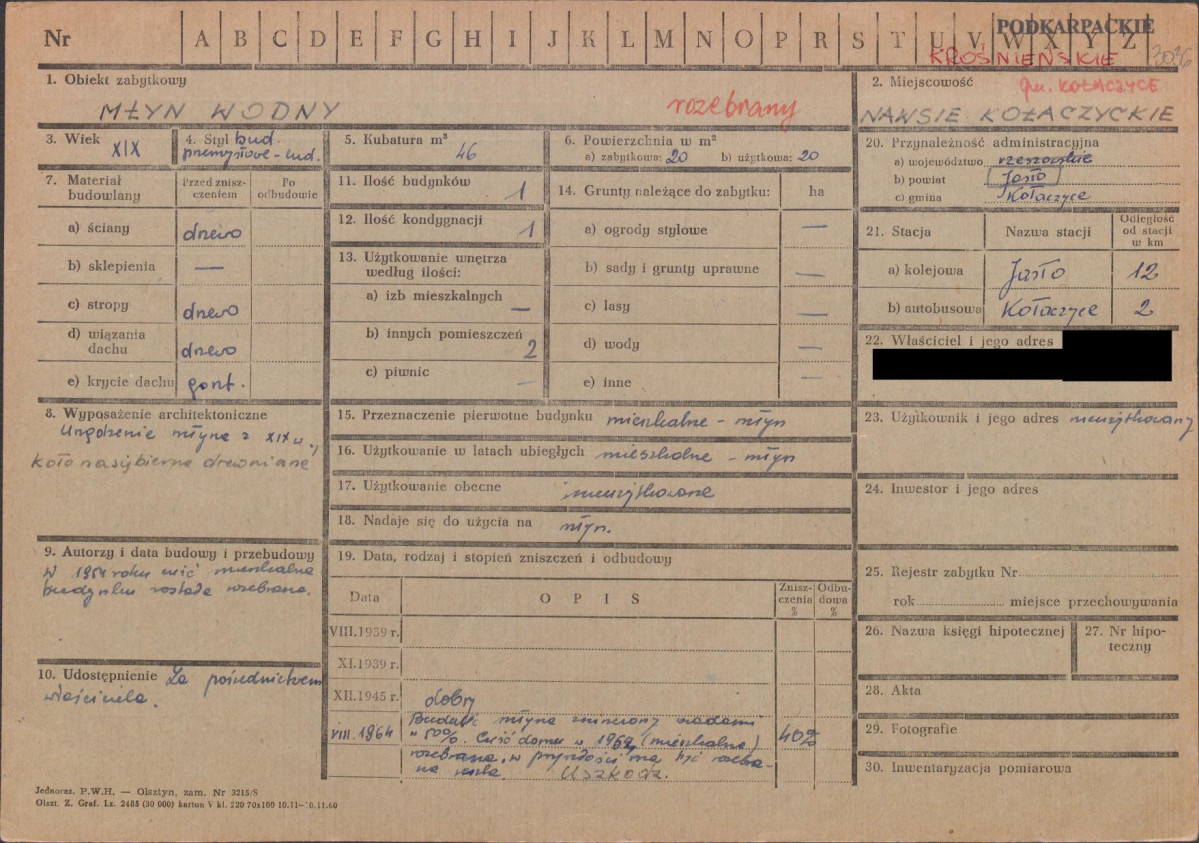 Nr A B C D E F G H I J K L M N O P R S T U V W X Y Z
PODKARPACKIE
KROŚNIEŃSKIE
3036
1. Obiekt zabytkowy
MŁYN WODNY
rozebrany
2. Miejscowość
gm. KOŁACZYCE
NAWSIE KOŁACZYCKIE
3. Wiek XIX
4. Styl bud.
przemysłowe-lud.
5. Kubatura m³
46
6. Powierzchnia w m²
a) zabytkowa: 20 b) użytkowa: 20
7. Materiał budowlany
Przed zniszczeniem
Po odbudowie
a) ściany drzewo
b) sklepienia —
c) stropy drzewo
d) wiązania dachu drzewo
e) krycie dachu gont.
8. Wyposażenie architektoniczne
Urządzenie młyna z XIX w.,
koło nasiębierne drewniane
9. Autorzy i data budowy i przebudowy
W 1964 roku część mieszkalna
budynku została rozebrana.
10. Udostępnienie Za pośrednictwem
właściciela.
11. Ilość budynków 1
12. Ilość kondygnacji 1
13. Użytkowanie wnętrza
według ilości:
a) izb mieszkalnych —
b) innych pomieszczeń 2
c) piwnic —
14. Grunty należące do zabytku: ha
a) ogrody stylowe —
b) sady i grunty uprawne —
c) lasy —
d) wody —
e) inne —
15. Przeznaczenie pierwotne budynku mieszkalne - młyn
16. Użytkowanie w latach ubiegłych mieszkalne - młyn
17. Użytkowanie obecne nieużytkowane
18. Nadaje się do użycia na młyn.
19. Data, rodzaj i stopień zniszczeń i odbudowy
Data OPIS Zniszczenia % Odbudowa %
VIII.1939 r.
XI.1939 r.
XII.1945 r. dobry
VIII.1964 Budynek młyna zniszczony
w 50%. Część domu w 1964 (mieszkalna) 40%
rozebrana, w przyszłości ma być rozebrana
USZKODZ.
20. Przynależność administracyjna
a) województwo rzeszowskie
b) powiat Jasło
c) gmina Kołaczyce
21. Stacja Nazwa stacji Odległość od stacji w km
a) kolejowa Jasło 12
b) autobusowa Kołaczyce 2
22. Właściciel i jego adres
23. Użytkownik i jego adres nieużytkowany
24. Inwestor i jego adres
25. Rejestr zabytku Nr
rok miejsce przechowywania
26. Nazwa księgi hipotecznej
27. Nr hipoteczny
28. Akta
29. Fotografie
30. Inwentaryzacja pomiarowa
Jednoraz. P.W.H. — Olsztyn, zam. Nr 3215/S
Olszt. Z. Graf. Lz. 2485 (30 000) karton V kl. 220 70x100 10.11—10.11.60